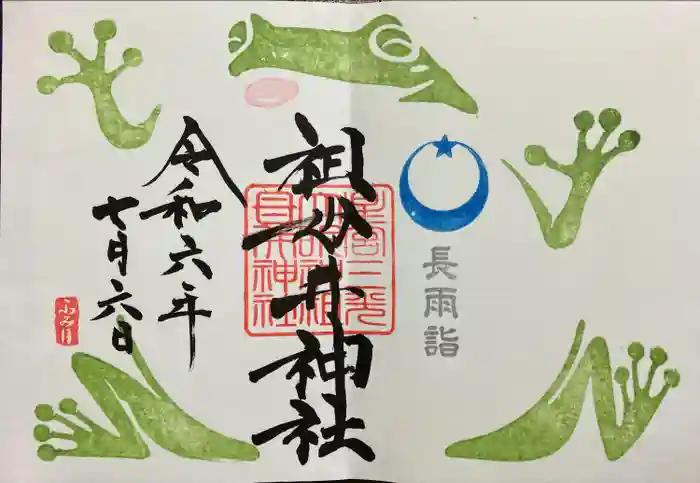 長雨詣
祖母井神社
令和六年
七月六日
ふみ月